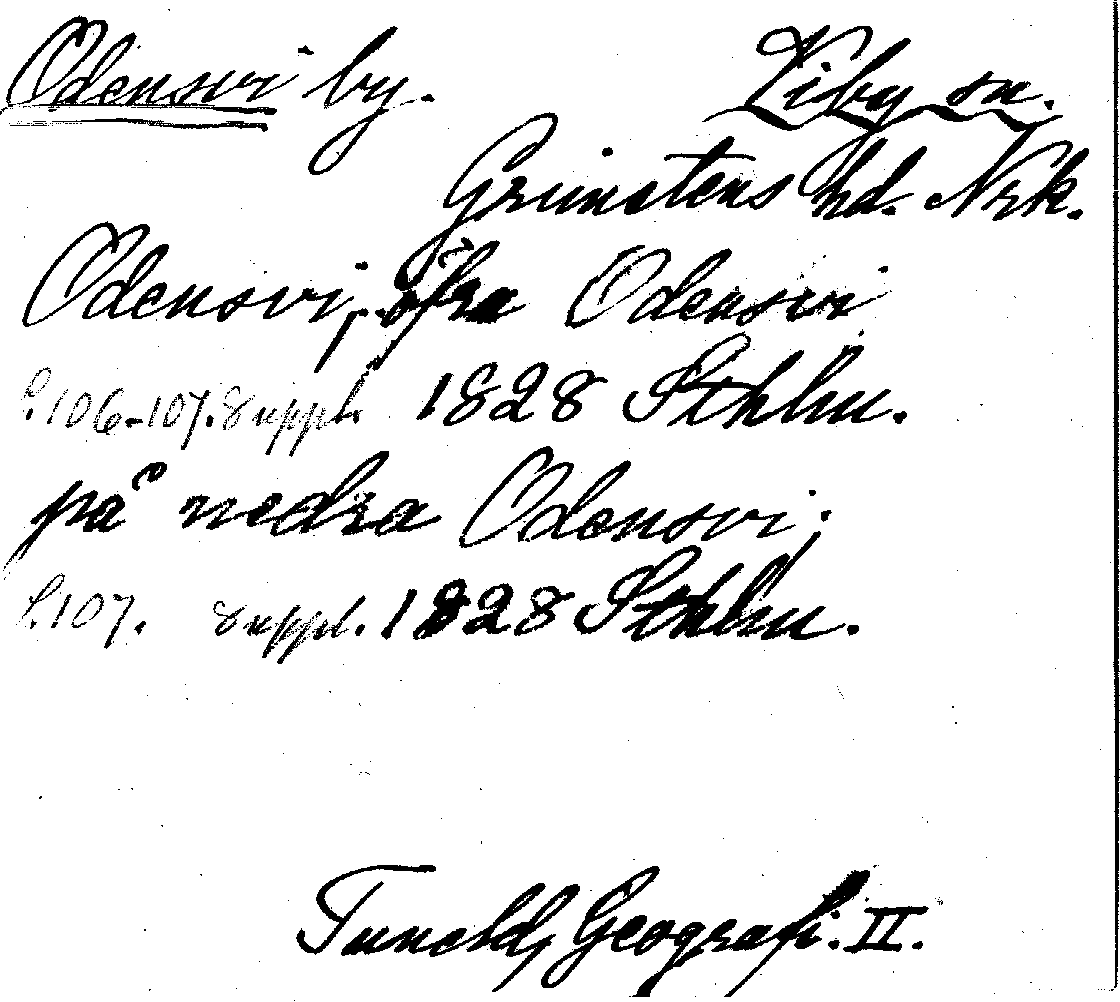 Odensvi by. Viby sn.
Grimstens hd. Nrk.
Odensvi, öfra Odensvi
S. 106-107. Suppl. 1828 Sthlm.
på nedra Odensvi;
S. 107. Suppl. 1828 Sthlm.
Tuneld, Geografi. II.